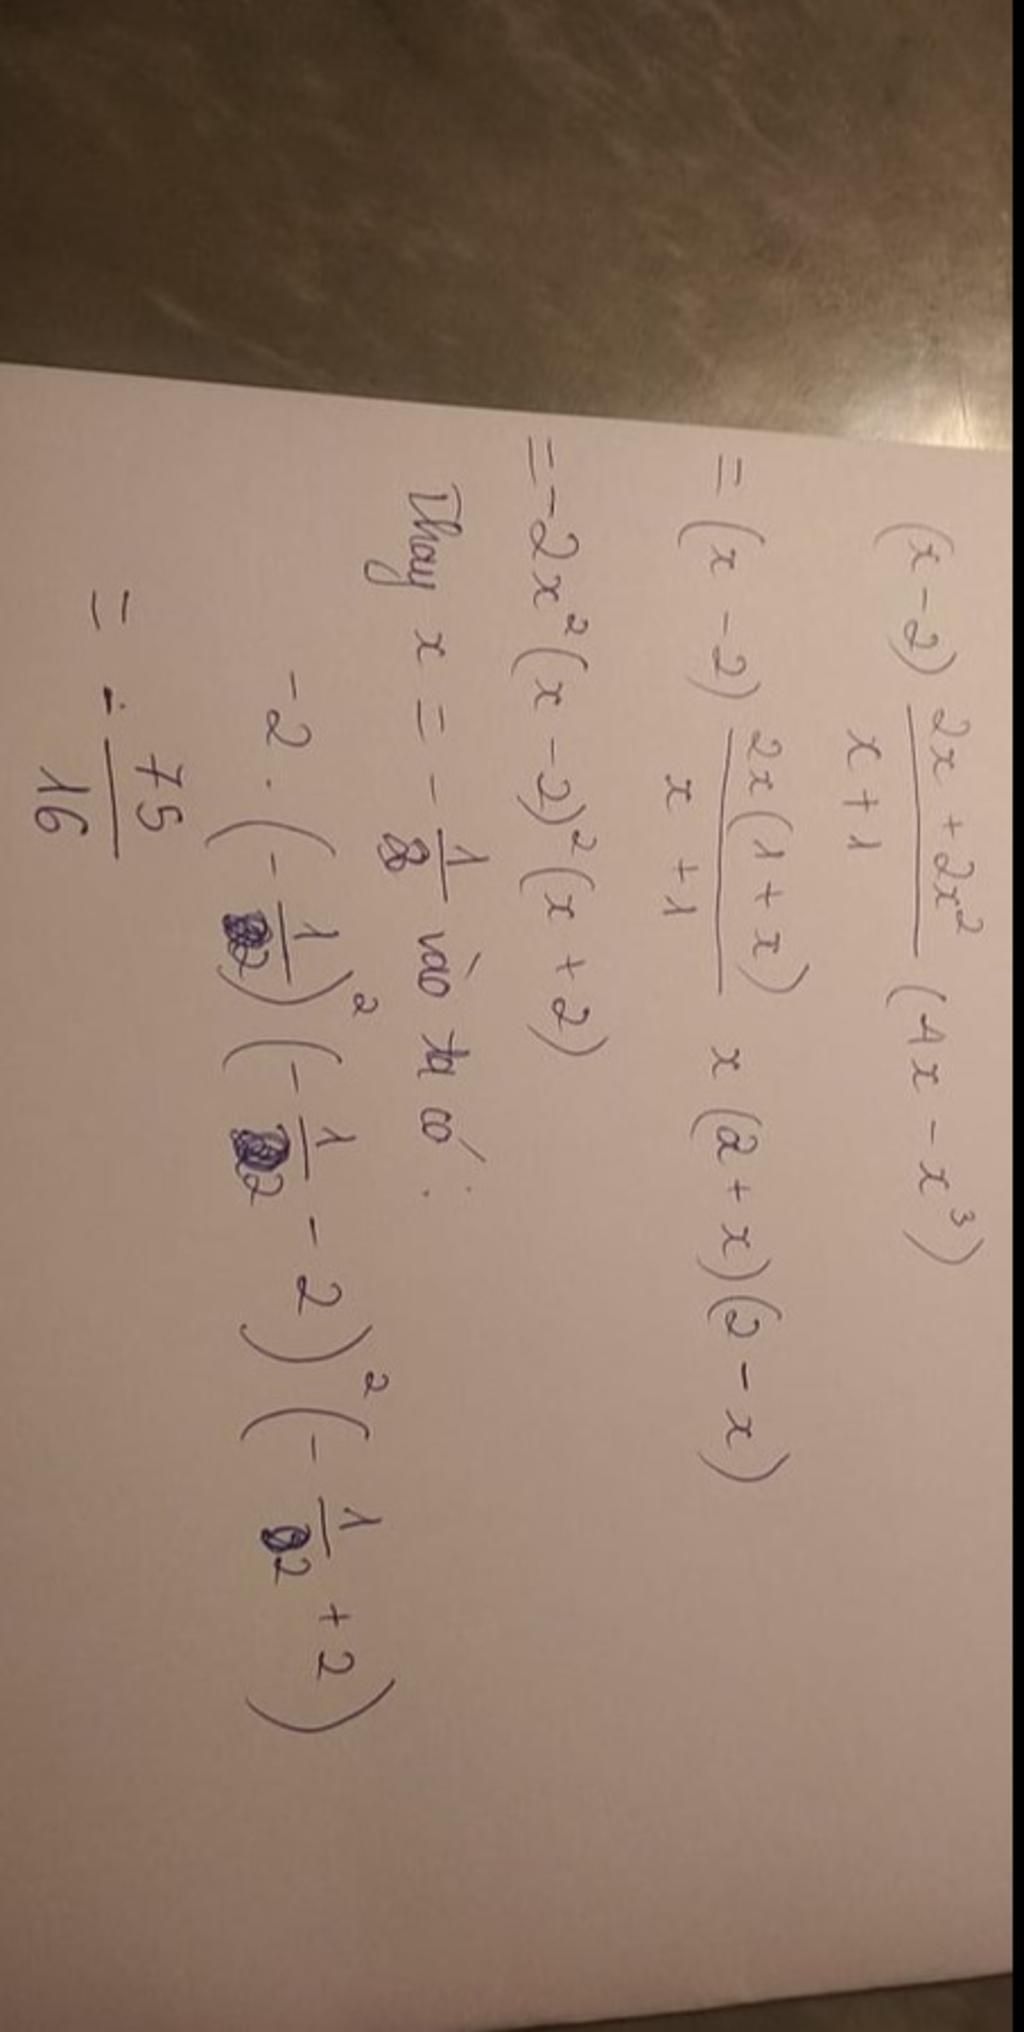 (x - 2) \frac{2x + 2x^2}{x + 1} (4x - x^3)
= (x - 2) \frac{2x(1 + x)}{x + 1} x(2 + x)(2 - x)
= -2x^2(x - 2)^2(x + 2)
Thay x = -\frac{1}{2} vào ta có :
-2 . (-\frac{1}{2})^2 (-\frac{1}{2} - 2)^2 (-\frac{1}{2} + 2)
= -\frac{75}{16}